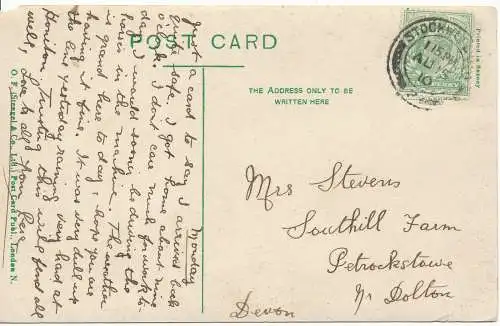 POST CARD
THE ADDRESS ONLY TO BE
WRITTEN HERE
Printed in Saxony
STOCKWELL
1.15 PM
AU
10
Monday
Just a card to say I arrived back
quite safe. I got home about nine
o'clock. I don't care much for work to-
day. I would sooner be driving the
horse in the machine. The weather
is grand here to-day. hope you are
having it fine. It was very dull up
the line yesterday raining very hard at
Honiton. Trusting this will find all
well, Love to all from
O. F. (Stengel & Co., Ltd.) Post Card Publ., London N.
Mrs Stevens
Southill Farm
Petrockstowe
Nr Dolton
Devon